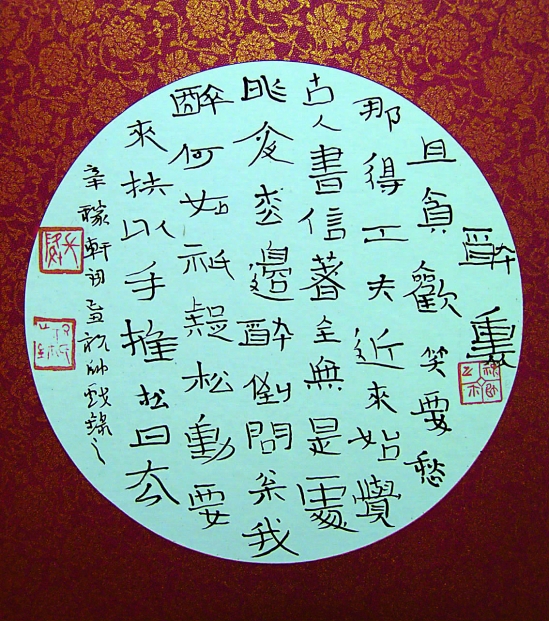 醉裏
且貪歡笑要愁
那得工夫近來始覺
古人書信著全無是處
昨夜松邊醉倒問松我
醉何如祇疑松動要
來扶以手推松曰去
辛稼軒詞